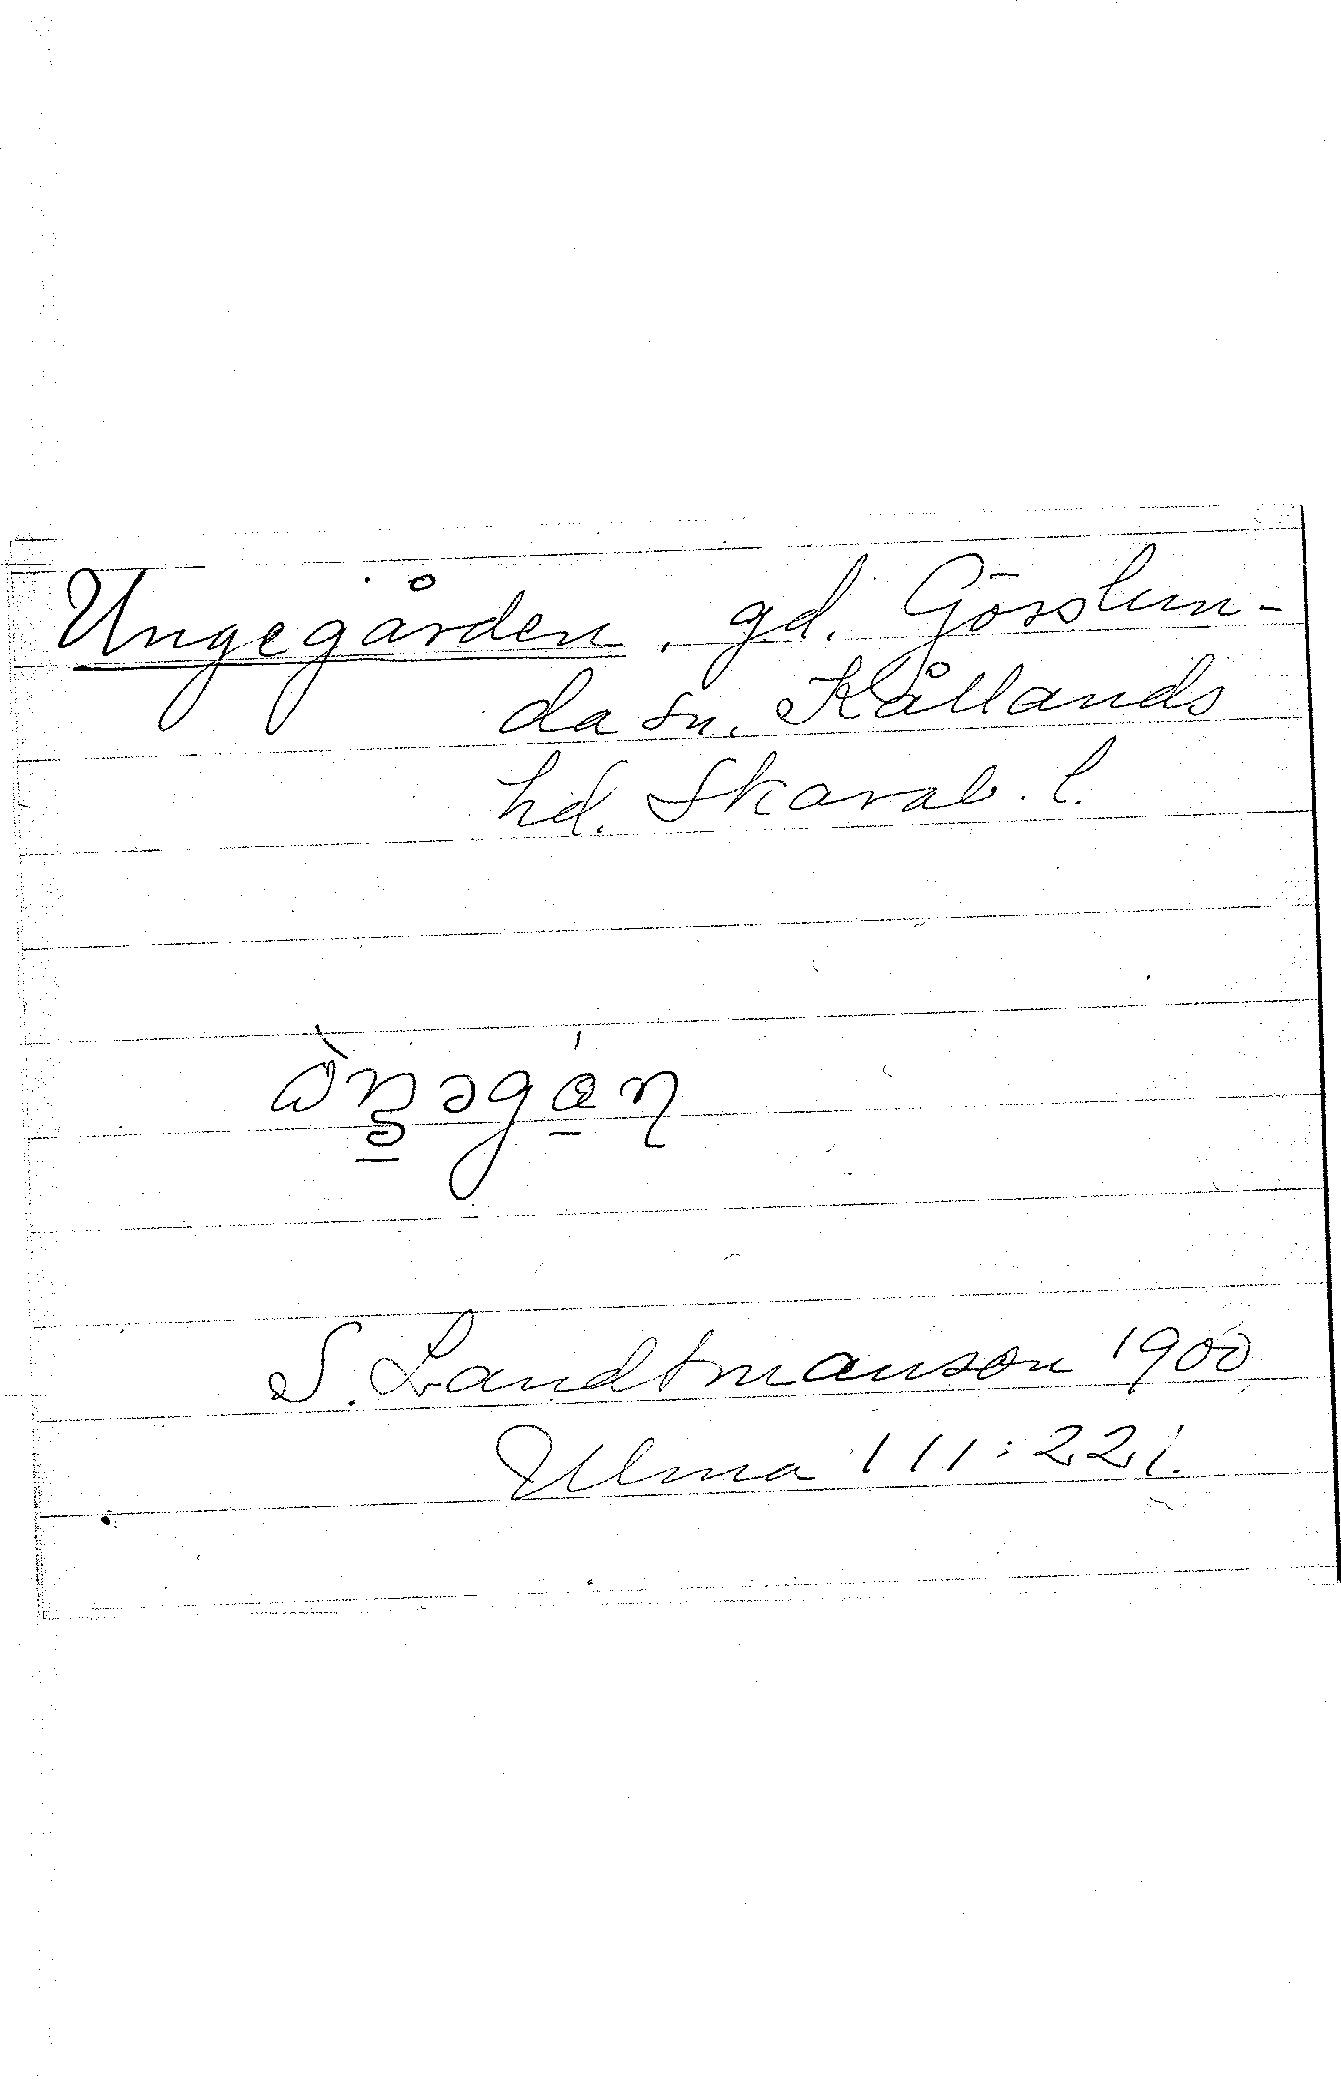 Ungegården, gd. Görslun-
da sn. Kållands
hd. Skarab. l.
S. Landtmanson 1900
Ulma 111:221.